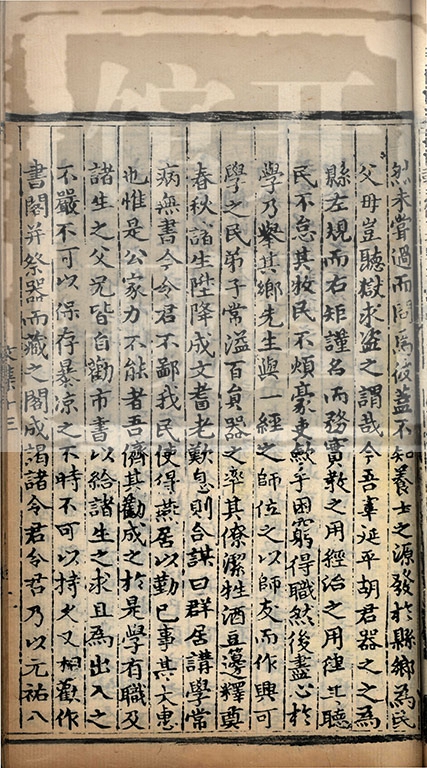 然未嘗過而問焉彼蓋不知養士之源發於縣鄉為民
父母豈聽獄求盜之謂哉今吾宰延平胡君器之之為
縣左規而右矩謹名而務實敎之用經治之用聽
民不怠其救民不煩豪吏歛手困窮得職然後盡心於
學乃舉其鄉先生與一經之師位之以師友而作興可
學之民弟子常溢百員器之率其僚潔牲酒豆籩釋奠
春秋諸生陞降成文耆老歎息則合謀曰群居講學常
病無書今令君不鄙我民使得燕居以勤已事其大惠
也惟是公家力不能者吾儕其勸成之於是學有職及
諸生之父兄皆自勸市書以給諸生之求且為出入之
不嚴不可以保存暴凉之不時不可以持久又相勸作
書閣并祭器而藏之閣成謁諸令君令君乃以元祐八
文集十三